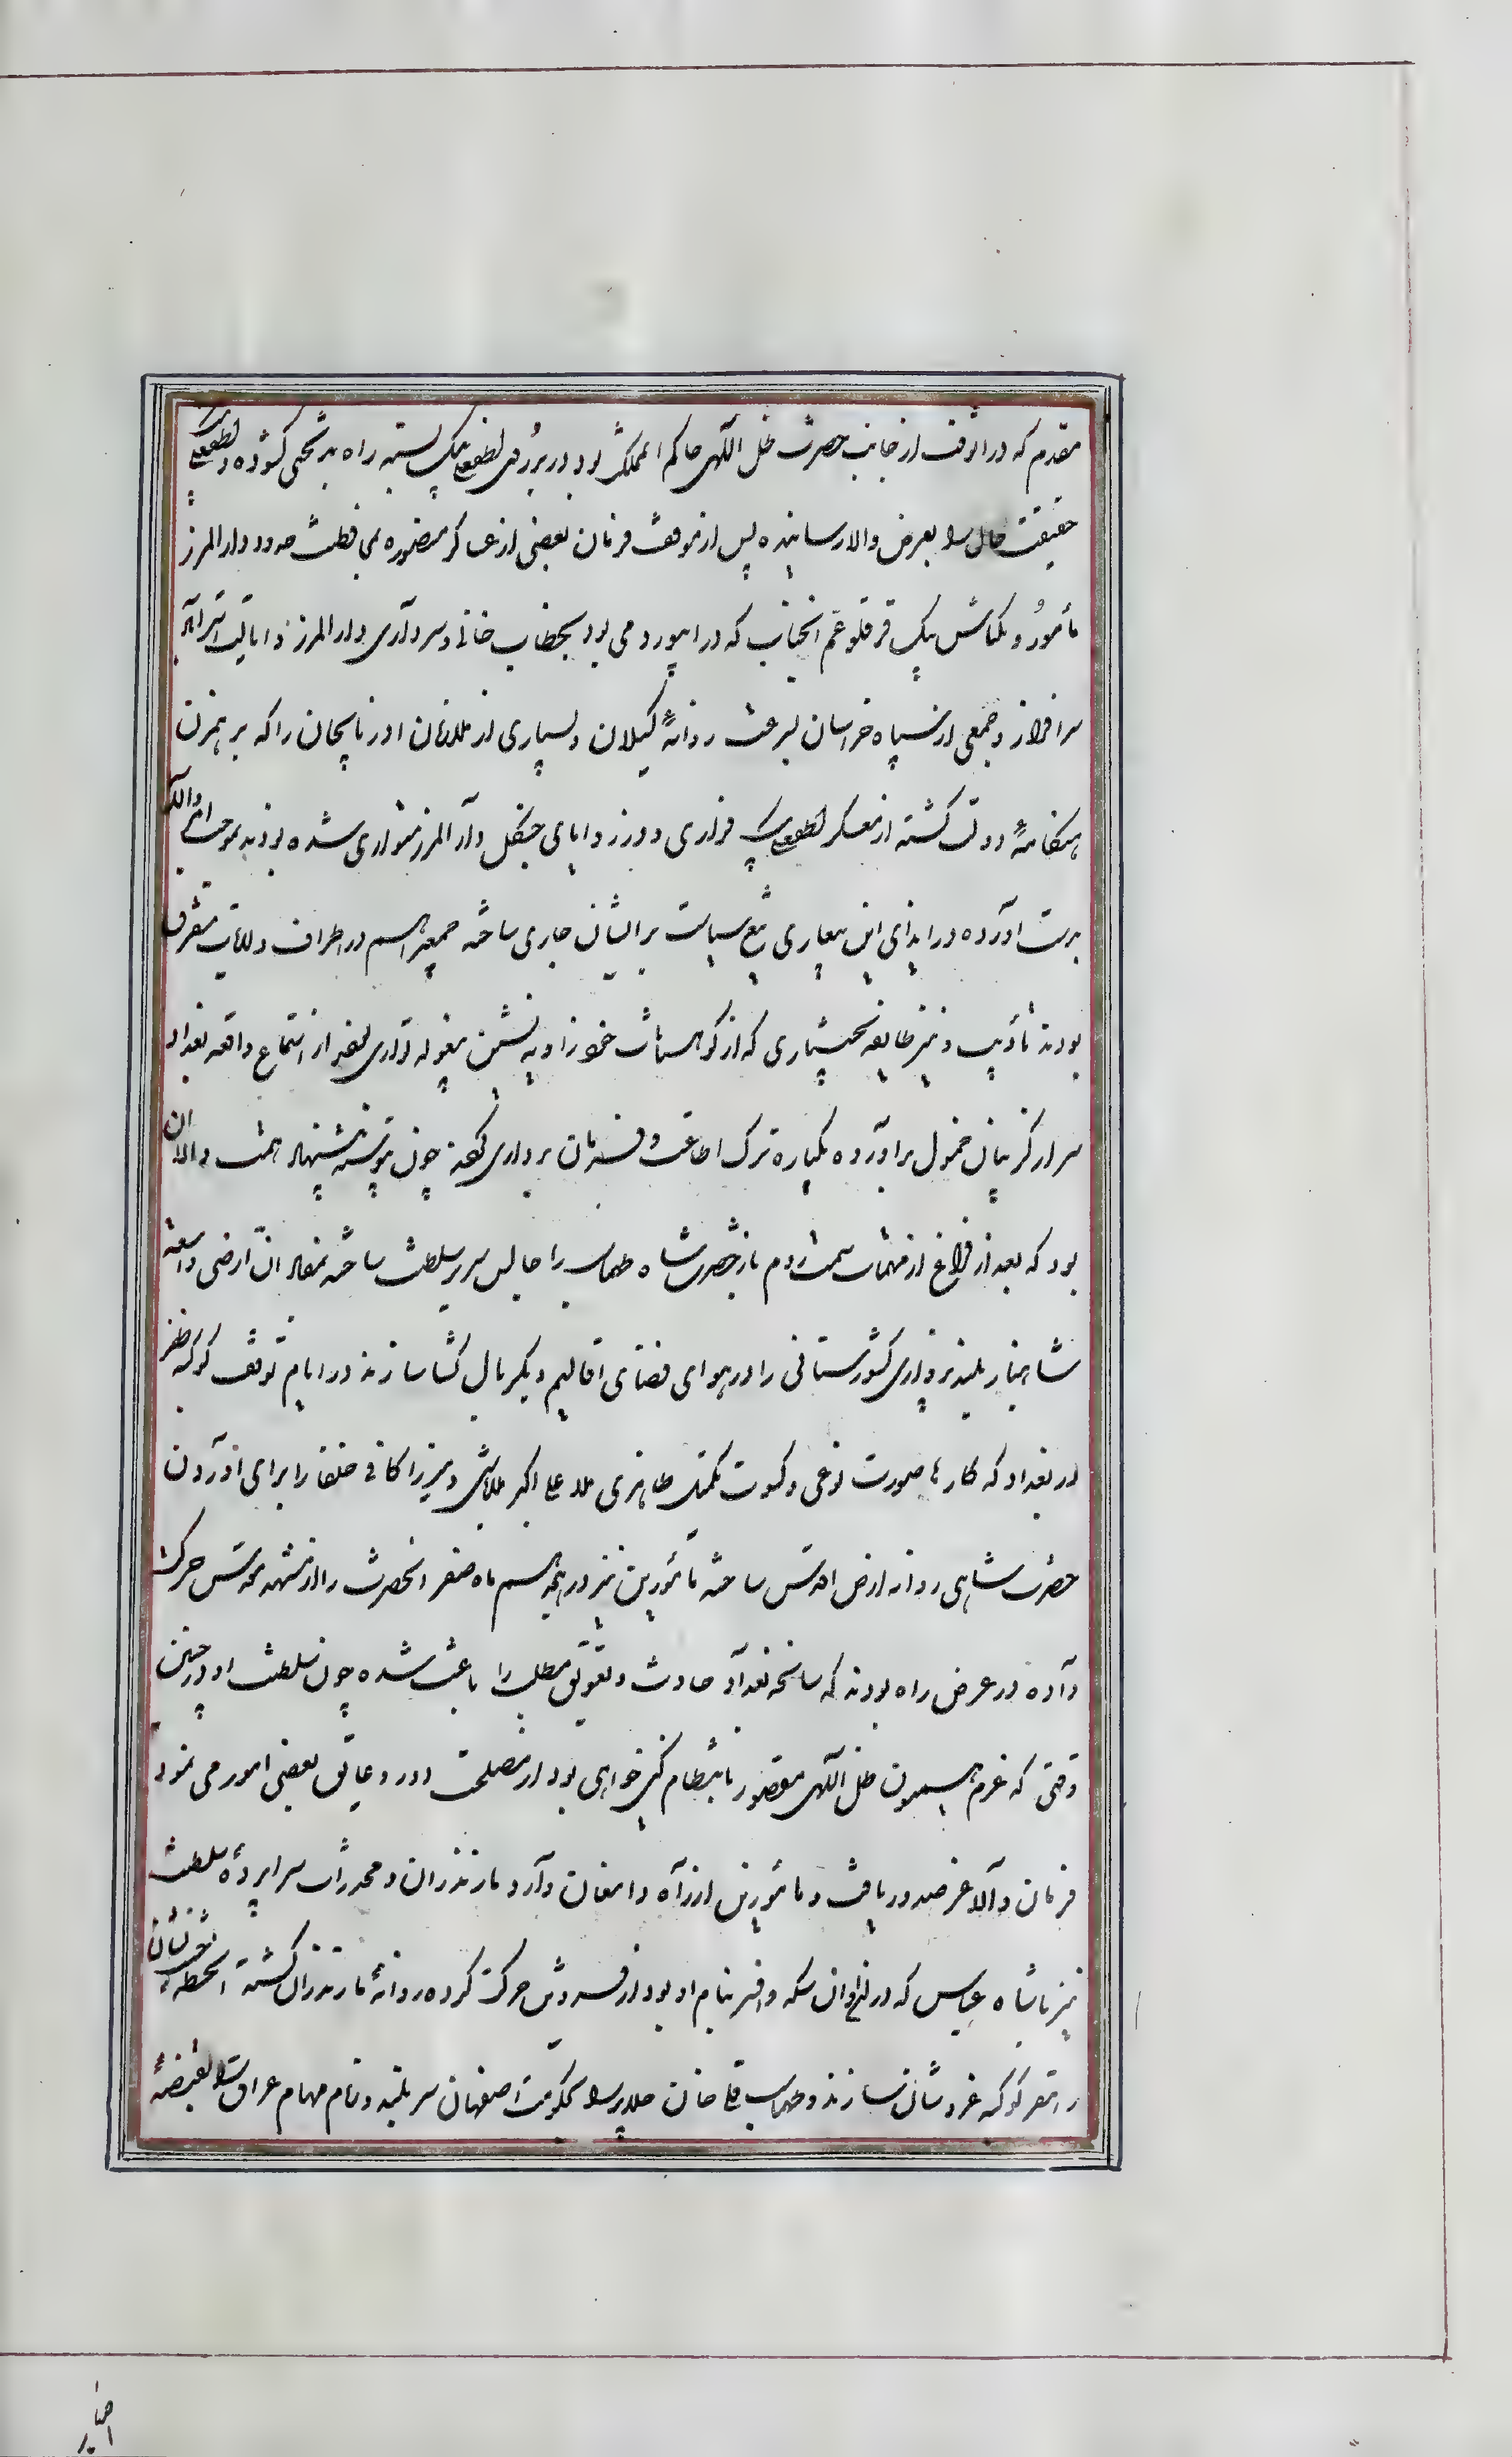 مقدم که در انوقت از جانب حضرت ظل اللهی حاکم انمملکت بود در بر روی لطفعلی بیک بسته راه بدبختی کشوده و لطفعلی بیک
حقیقت حال را بعرض والا رسانیده پس از موقف فرمان بعضی از عساکر منصوره بمحافظت حدود دار المرز
مأمور و بکتاش بیک قرقلو عم انجناب که در ابیورد می بود بخطاب خانی و سرداری دار المرز و ایالت استراباد
سرافراز و جمعی از سپاه خراسان بسرعت روانهٔ کیلان و بسیاری از ملازمان اذربایجان را که بر همزن
هنکامهٔ دولت کشته از معسکر لطفعلی بیک فراری و در زوایای جنکل دار المرز متواری شده بودند بموجب امر والا
بدست اورده در ازای این تیغ سیاست بر ایشان جاری ساخته جمعی را هم در اطراف ولایات متفرق
بودند تأدیب و نیز طایفه بختیاری که از کوهستانات خود زاویه نشین بیغوله تواری بودند از استماع واقعه بغداد
سر از کریبان خمول براورده یکباره ترک اطاعت و فرمان برداری کردند چون پیوسته پیشنهاد همت والا ان
بود که بعد از فراغ از مهمات سمت روم باز حضرت شاه طهماسب را جالس سریر سلطنت ساخته بمفاد ان ارضی واسعة
شاهباز بلند پروازی کشورستانی را در هوای فضای اقالیم دیکر بال کشا سازند در ایام توقف کوکبه ظفر
در بغداد که کارها صورت نوعی و کسوت تمکن ظاهری ملا علی اکبر ملاباشی و میرزا کافی خلفا را برای اوردن
حضرت شاهی روانه ارض اقدس ساخته مأمورین نیز در پنجم ماه صفر انحضرت را از مشهد مقدس حرکت
داده در عرض راه بودند که سانحه بغداد حادث و تعویق مطلب را باعث شده چون سلطنت او در چنین
وقتی که عزم همیون ظل اللهی مقصور بانتظام کین خواهی بود از مصلحت دور و عایق بعضی امور می نمود
فرمان والا عز صدور یافت و مأمورین از راه دامغان وارد مازندران و مخدرات سراپردهٔ سلطنت
نیز با شاه عباس که در ان اوان سکه و افسر بنام او بود از قزوین حرکت کرده روانهٔ مازندران کشته انخطه جنت نشان
را مقر کوکبه عز و شان سازند و طهماسب قلی خان جلایر را بحکومت اصفهان سربلند و تمام مهام عراق را بقبضهٔ